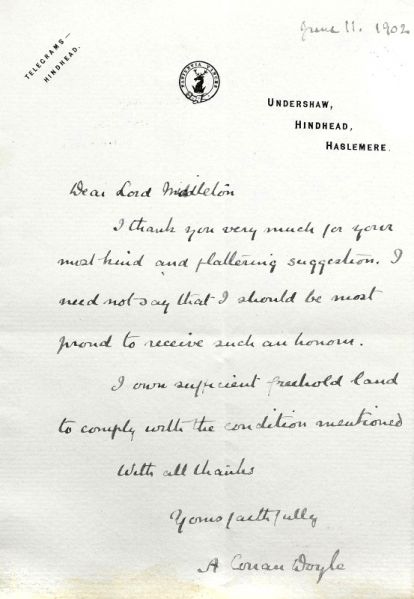 June 11. 1902
TELEGRAMS—
HINDHEAD.
UNDERSHAW,
HINDHEAD,
HASLEMERE.
Dear Lord Middleton
I thank you very much for your
most kind and flattering suggestion. I
need not say that I should be most
proud to receive such an honour.
I own sufficient freehold land
to comply with the condition mentioned
With all thanks
Yours faithfully
A Conan Doyle